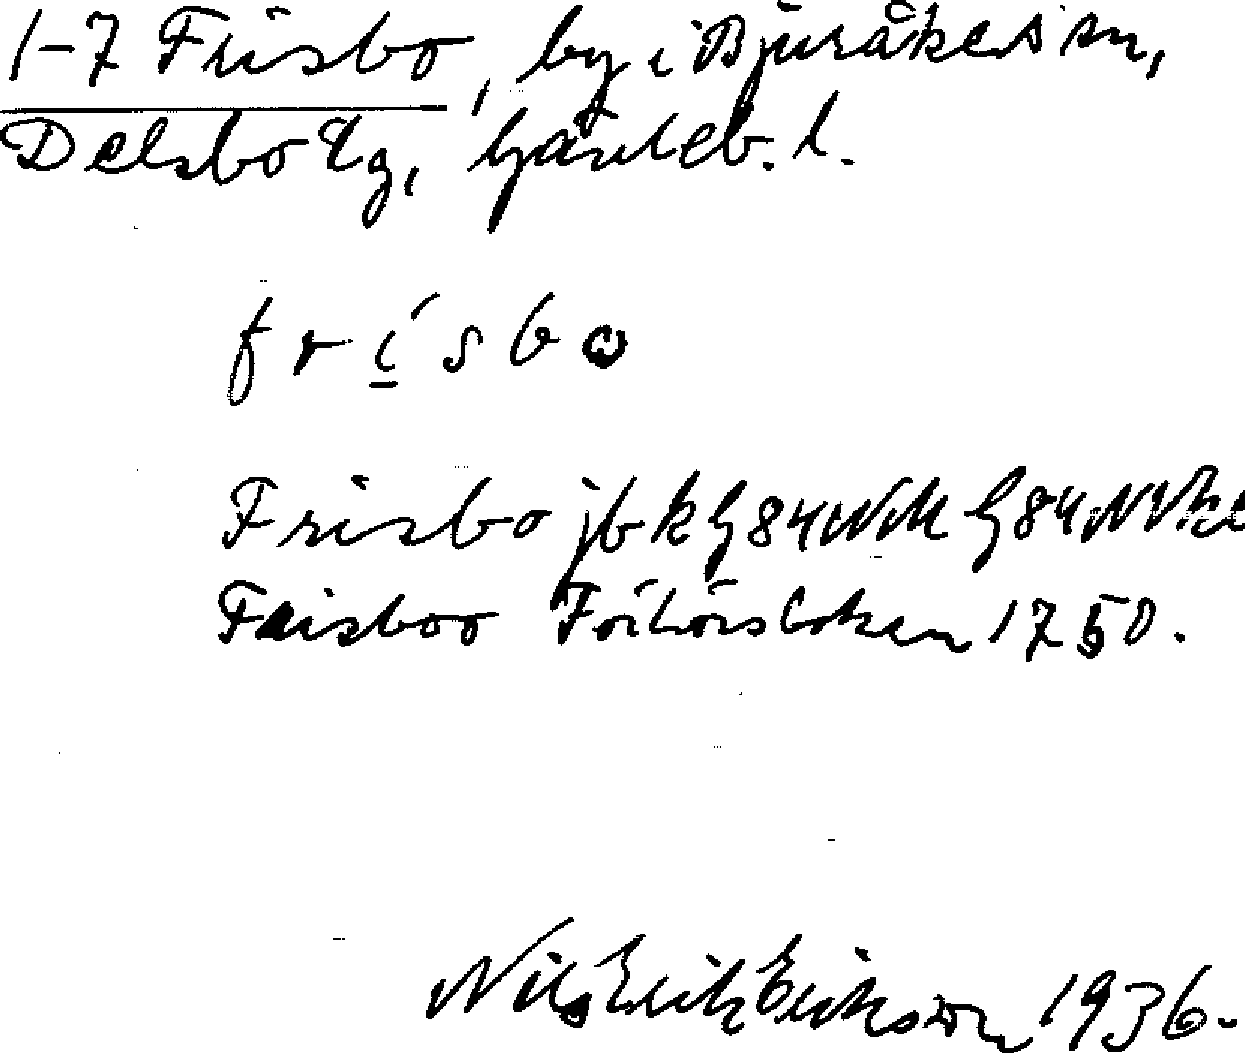 1-7 Frisbo, by i Bjuråkers sn,
Delsbo tg, Gävleb. l.
frísbo
Frisbo jb k G84NV
Frisboo Förhörsboken 1750.
Nils Erik Erikson 1936.